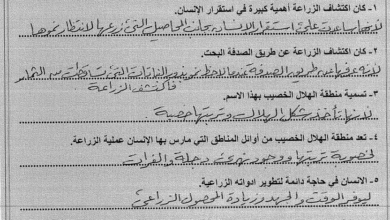 ١- كان اكتشاف الزراعة أهمية كبيرة في استقرار الإنسان.
لأنها ساعدت على استقرار الإنسان بجانب المحاصيل التي زرعها لانتظار نموها
٢- كان اكتشاف الزراعة عن طريق الصدفة البحت.
لأنه عرفها عن طريق الصدفة عندما لاحظ نمو بذور النباتات التي تساقطت من الثمار
فاكتشف الزراعة
٣- تسمية منطقة الهلال الخصيب بهذا الاسم.
لأنها تأخذ شكل الهلال وتربتها خصبة
٤- تعد منطقة الهلال الخصيب من أوائل المناطق التي مارس بها الإنسان عملية الزراعة.
لخصوبة تربتها ووجود نهري دجلة والفرات
٥- الإنسان في حاجة دائمة لتطوير أدواته الزراعية.
ليوفر الوقت والجهد وزيادة المحصول الزراعي